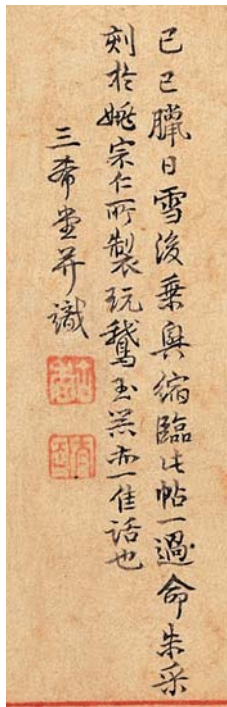 己巳臘日雪後乘興縮臨此帖一過命朱采
刻於姚宗仁所製玩鵝玉器亦一佳話也
三希堂并識